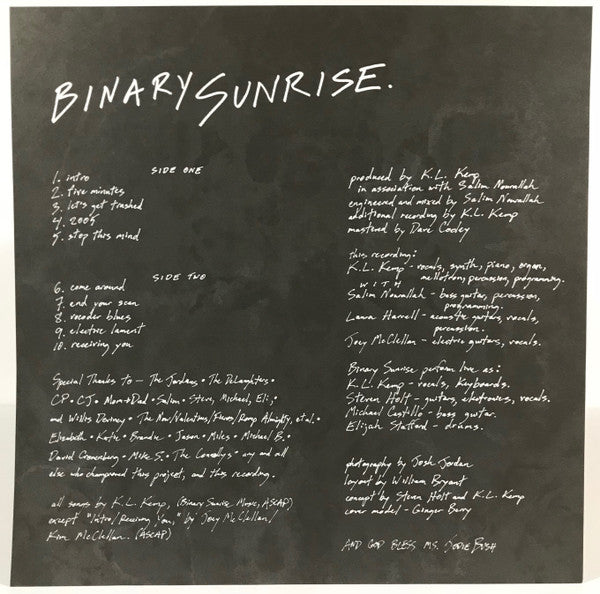 BINARY SUNRISE.
SIDE ONE
1. intro
2. five minutes
3. let's get trashed
4. 2005
5. stop this mind
SIDE TWO
6. come around
7. end your scan
8. vocoder blues
9. electric lament
10. receiving you
Special Thanks to — The Jordans • The DeLaughters •
CP • CJ • Mom + Dad • Salim • Steve, Michael, Eli;
and Willis Deviney • The New/Valentins/ /Romp Almighty, et al. •
Elizabeth • Katie • Brandie • Jason • Miles • Michael B. •
David Cronenberg • Mike S. • The Connollys • any and all
else who championed this project, and this recording.
all songs by K.L. Kemp, (Binary Sunrise Music, ASCAP)
except "Intro/Receiving You," by Joey McClellan/
Kim McClellan. (ASCAP)
produced by K.L. Kemp
in association with Salim Nourallah
engineered and mixed by Salim Nourallah
additional recording by K.L. Kemp
mastered by Dave Cooley
this recording:
K.L. Kemp - vocals, synth, piano, organ,
mellotron, percussion, programming.
WITH
Salim Nourallah - bass guitar, percussion,
programming.
Laura Harrell - acoustic guitar, vocals,
percussion.
Joey McClellan - electric guitars, vocals.
Binary Sunrise perform live as:
K.L. Kemp - vocals, keyboards.
Steven Holt - guitars, electronics, vocals.
Michael Castillo - bass guitar.
Elijah Stafford - drums.
photography by Josh Jordan
layout by William Bryant
concept by Steven Holt and K.L. Kemp
cover model - Ginger Berry
AND GOD BLESS MS. JODIE BUSH